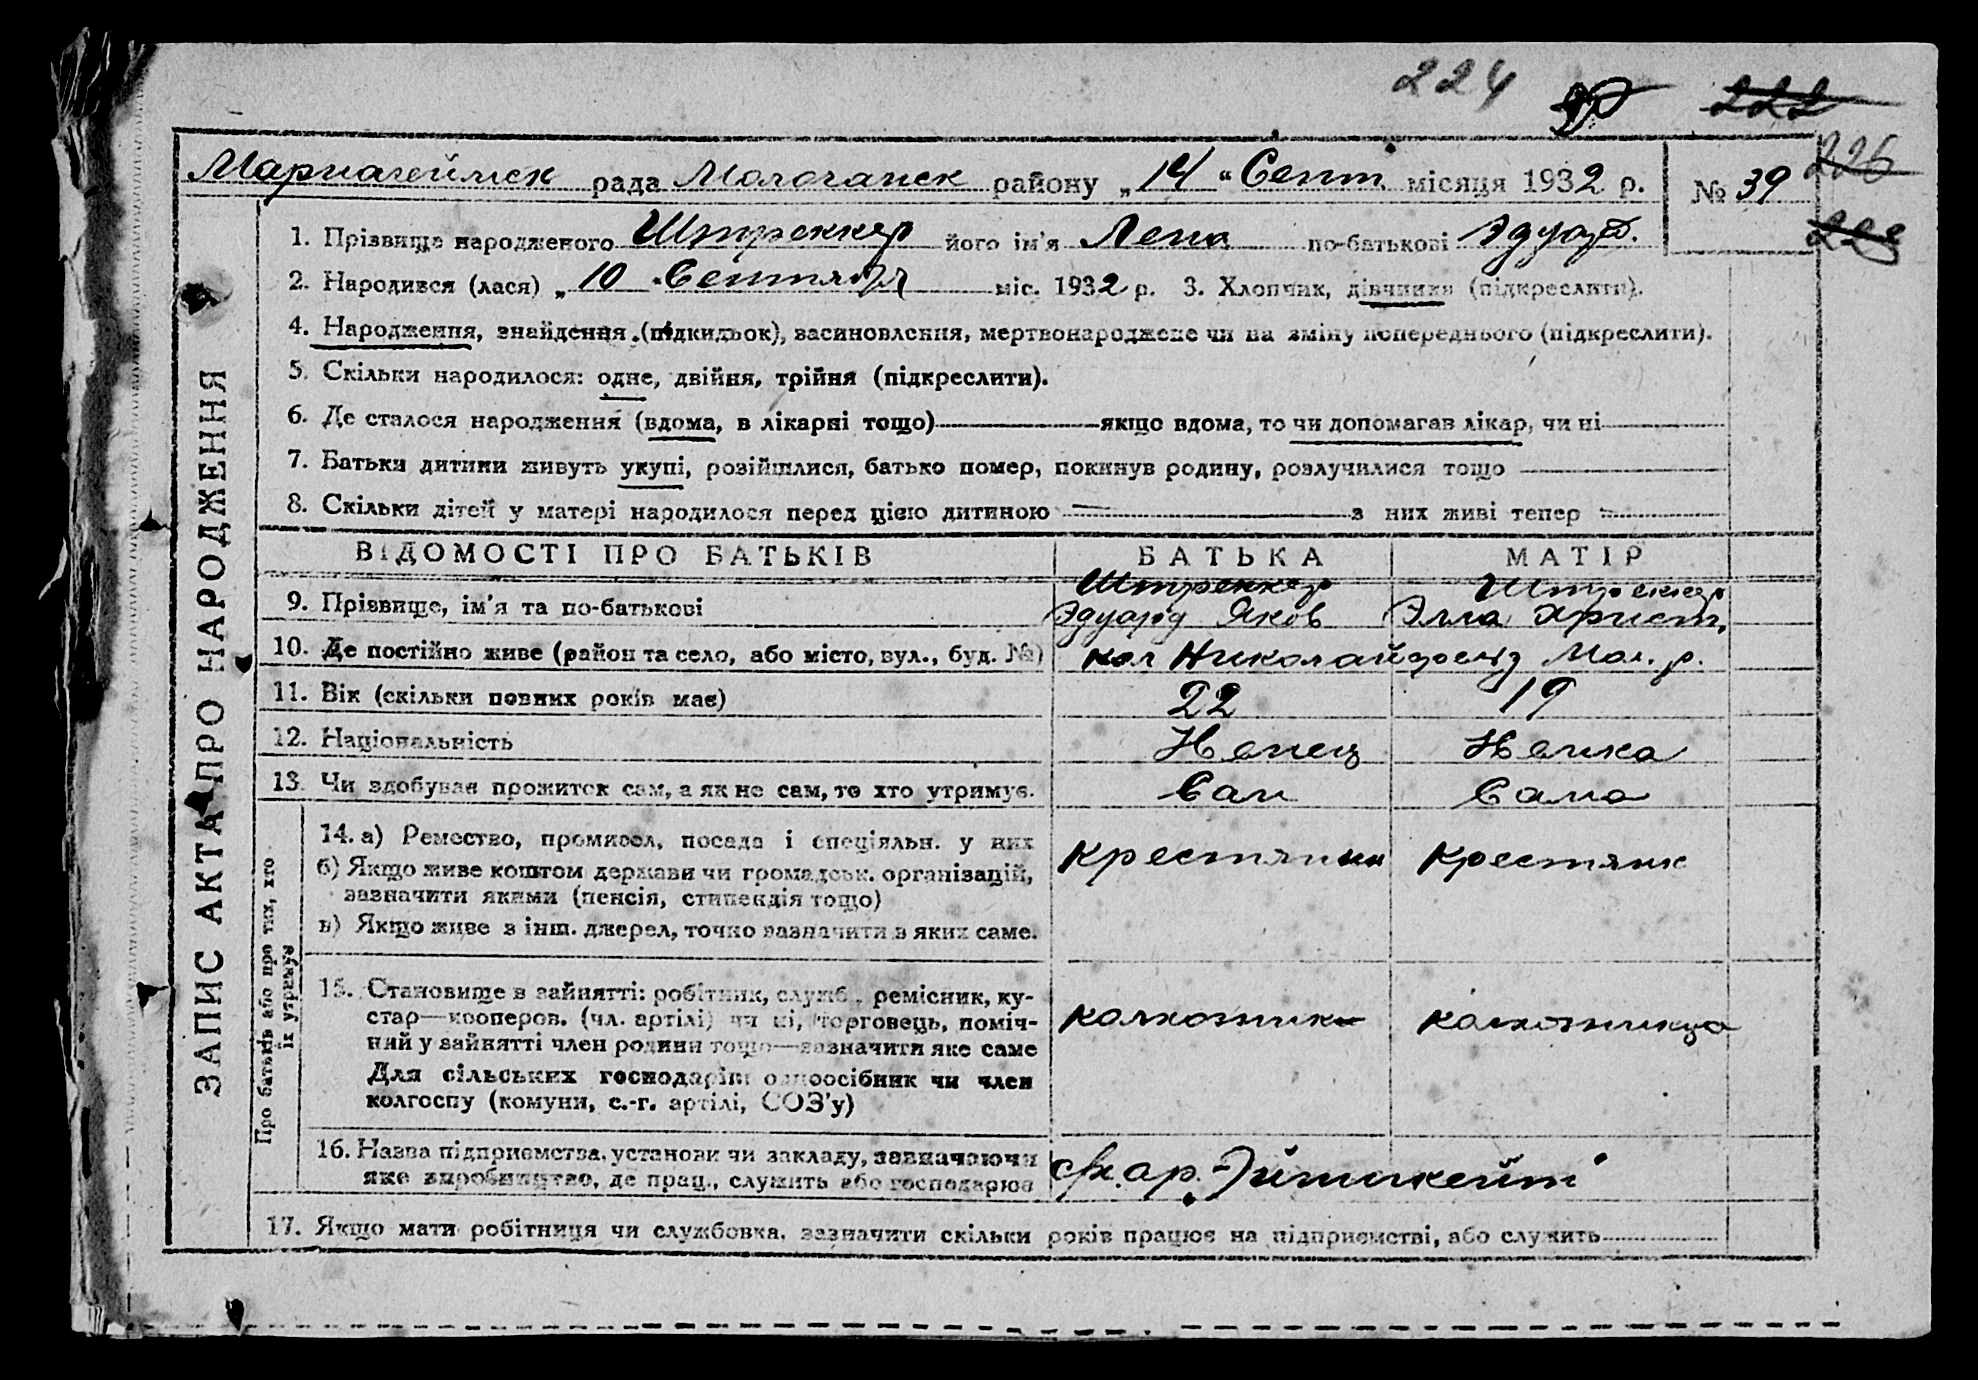 224 222
226
Мариагеймск рада Молочанск району „14“ Сент. місяця 1932 р. № 39
228
1. Прізвище народженого Штреккер його ім'я Лена по-батькові Эдуард.
2. Народився (лася) „10 Сентября міс. 1932 р. 3. Хлопчик, дівчинка (підкреслити).
4. Народження, знайдення (підкидьок), засиновлення, мертвонароджене чи на зміну попереднього (підкреслити).
5. Скільки народилося: одне, двійня, трійня (підкреслити).
6. Де сталося народження (вдома, в лікарні тощо) якщо вдома, то чи допомагав лікар, чи ні
7. Батьки дитини живуть укупі, розійшлися, батько помер, покинув родину, розлучилися тощо
8. Скільки дітей у матері народилося перед цією дитиною — з них живі тепер —
ВІДОМОСТІ ПРО БАТЬКІВ БАТЬКА МАТІР
9. Прізвище, ім'я та по-батькові Штреккер Эдуард Яков Штреккер Элла Христ.
10. Де постійно живе (район та село, або місто, вул., буд. №) кол Николайфельд Мол. р.
11. Вік (скільки повних років має) 22 19
12. Національність Немец Немка
13. Чи здобував прожиток сам, а як не сам, то хто утримує. Сам Сама
14. а) Ремество, промисел, посада і спеціяльн. у них крестянин крестянк
б) Якщо живе коштом держави чи громадськ. організацій,
зазначити якими (пенсія, стипендія тощо)
в) Якщо живе з інш. джерел, точно зазначити з яких саме.
15. Становище в зайнятті: робітник, служб., ремісник, ку-
стар—кооперов. (чл. артілі) чи ні, торговець, поміч-
ний у зайнятті член родини тощо—зазначити яке саме
колхозник колхозница
Для сільських господарів: одноосібник чи член
колгоспу (комуни, с.-г. артілі, СОЗ'у)
16. Назва підприємства, установи чи закладу, зазначаючи
яке виробництво, де прац., служить або господарює
17. Якщо мати робітниця чи службовка, зазначити скільки років працює на підприємстві, або служить
ЗАПИС АКТА ПРО НАРОДЖЕННЯ
Про батьків або про тих, хто
їх утримує